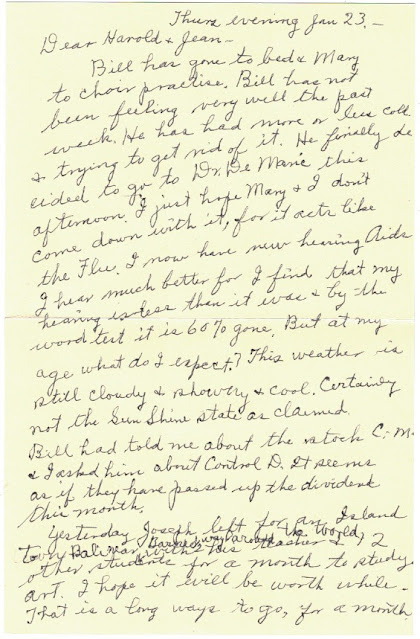 Thurs evening Jan 23.—
Dear Harold & Jean—
Bill has gone to bed & Mary
to choir practise. Bill has not
been feeling very well the past
week. He has had more or less cold
& trying to get rid of it. He finally de
cided to go to Dr. De Marie this
afternoon. I just hope Mary & I don't
come down with it, for it acts like
the Flu. I now have new hearing Aids
I hear much better for I find that my
hearing is less than it was & by the
word test it is 60% gone. But at my
age what do I expect? This weather is
still cloudy & showery & cool. Certainly
not the Sun Shine state as claimed.
Bill had told me about the stock C.M.
& I asked him about Control D. It seems
as if they have passed up the dividend
this month.
Yesterday Joseph left for an Island
Bali near way around the World,
with his teacher & 2
other students for a month to study
art. I hope it will be worth while.
That is a long ways to go, for a month